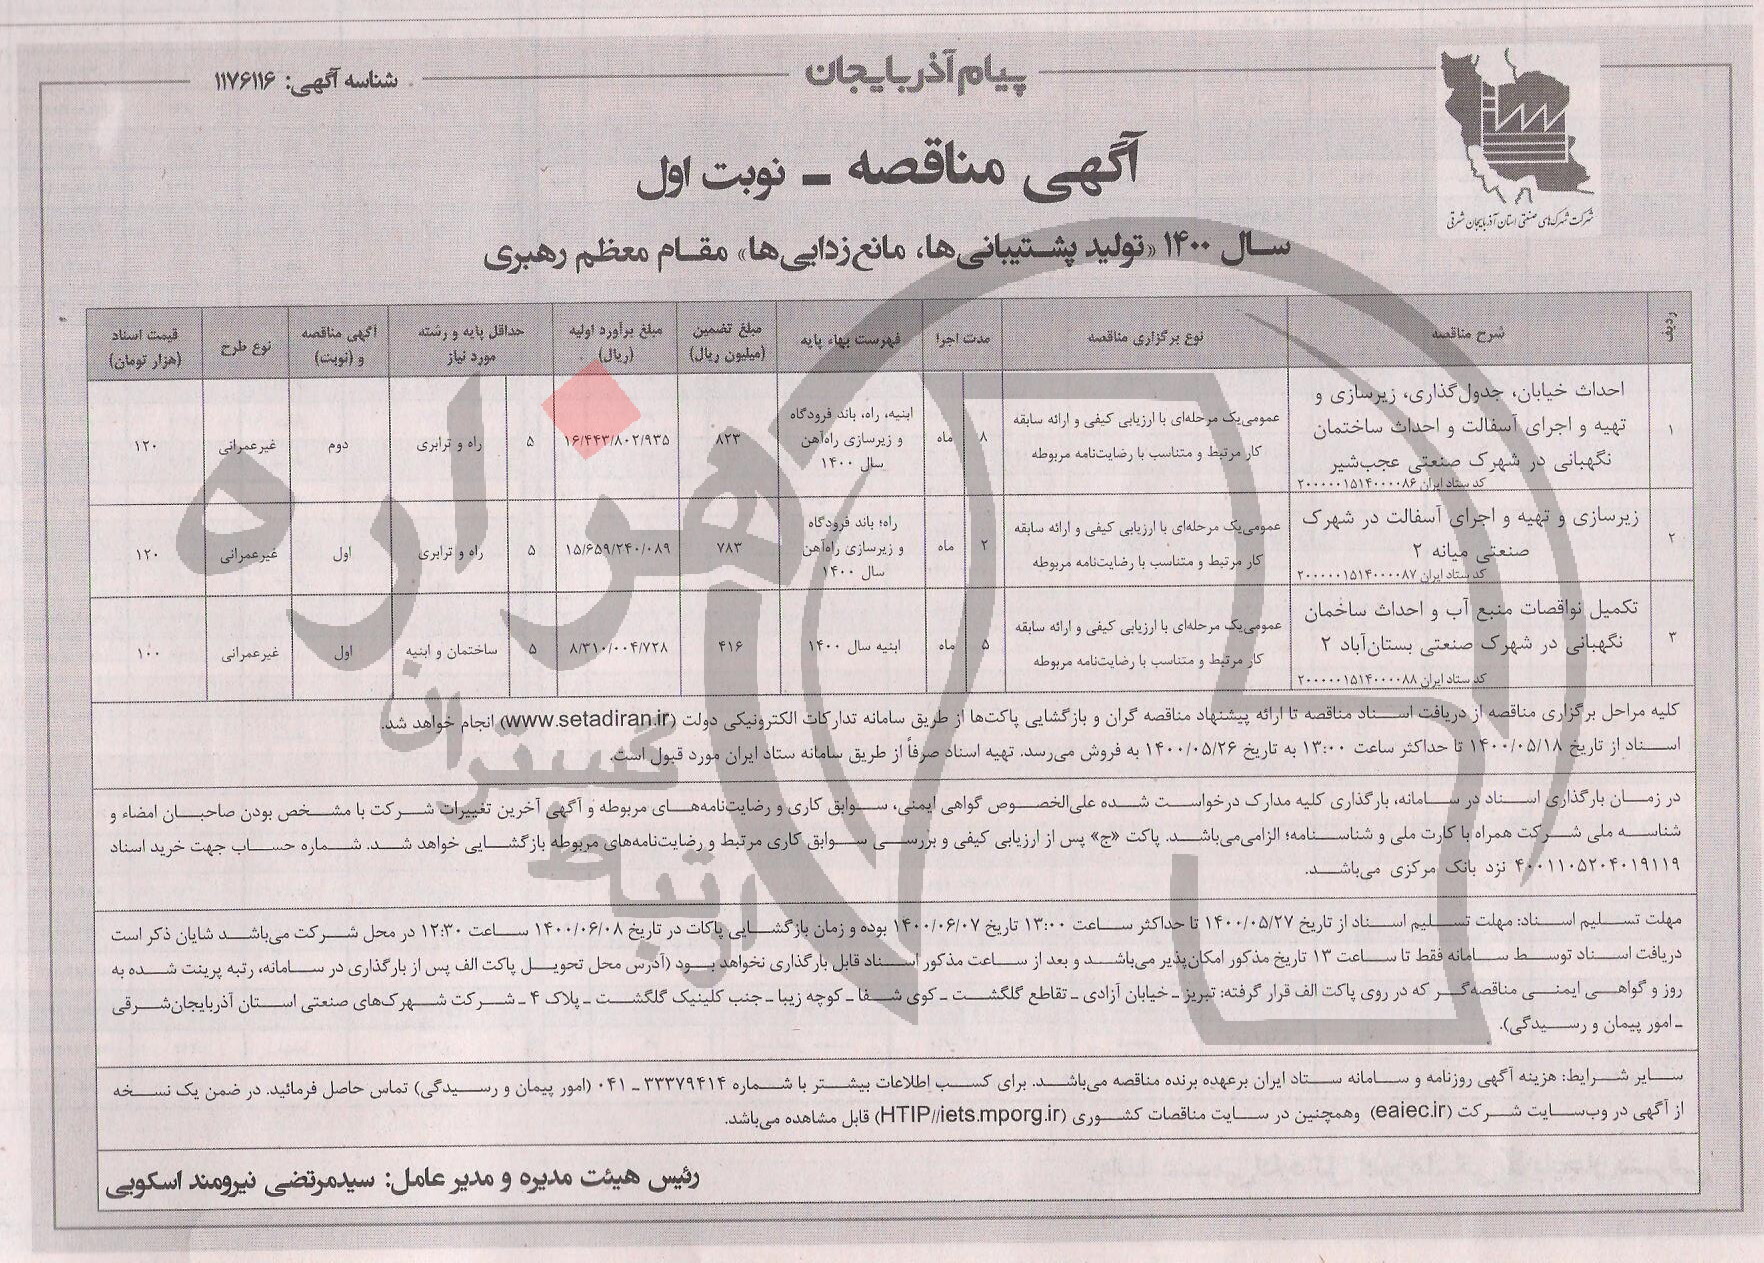 پیام آذربایجان
شناسه آگهی: ۱۱۷۶۱۱۶
شرکت شهرک‌های صنعتی استان آذربایجان شرقی
آگهی مناقصه ـ نوبت اول
سال ۱۴۰۰ «تولید پشتیبانی‌ها، مانع‌زدایی‌ها» مقام معظم رهبری
ردیف
شرح مناقصه
نوع برگزاری مناقصه
مدت اجرا
فهرست بهاء پایه
مبلغ تضمین
(میلیون ریال)
مبلغ برآورد اولیه
(ریال)
حداقل پایه و رشته
مورد نیاز
آگهی مناقصه
و (نوبت)
نوع طرح
قیمت اسناد
(هزار تومان)
۱
احداث خیابان، جدول‌گذاری، زیرسازی و
تهیه و اجرای آسفالت و احداث ساختمان
نگهبانی در شهرک صنعتی عجب‌شیر
کد ستاد ایران ۲۰۰۰۰۰۱۵۱۴۰۰۰۰۸۶
عمومی‌یک مرحله‌ای با ارزیابی کیفی و ارائه سابقه
کار مرتبط و متناسب با رضایت‌نامه مربوطه
۸
ماه
ابنیه، راه، باند فرودگاه
و زیرسازی راه‌آهن
سال ۱۴۰۰
۸۲۳
۱۶/۴۴۳/۸۰۲/۹۳۵
۵
راه و ترابری
دوم
غیرعمرانی
۱۲۰
۲
زیرسازی و تهیه و اجرای آسفالت در شهرک
صنعتی میانه ۲
کد ستاد ایران ۲۰۰۰۰۰۱۵۱۴۰۰۰۰۸۷
عمومی‌یک مرحله‌ای با ارزیابی کیفی و ارائه سابقه
کار مرتبط و متناسب با رضایت‌نامه مربوطه
۲
ماه
راه؛ باند فرودگاه
و زیرسازی راه‌آهن
سال ۱۴۰۰
۷۸۳
۱۵/۶۵۹/۲۴۰/۰۸۹
۵
راه و ترابری
اول
غیرعمرانی
۱۲۰
۳
تکمیل نواقصات منبع آب و احداث ساخمان
نگهبانی در شهرک صنعتی بستان‌آباد ۲
کد ستاد ایران ۲۰۰۰۰۰۱۵۱۴۰۰۰۰۸۸
عمومی‌یک مرحله‌ای با ارزیابی کیفی و ارائه سابقه
کار مرتبط و متناسب با رضایت‌نامه مربوطه
۵
ماه
ابنیه سال ۱۴۰۰
۴۱۶
۸/۳۱۰/۰۰۴/۷۲۸
۵
ساختمان و ابنیه
اول
غیرعمرانی
۱۰۰
کلیه مراحل برگزاری مناقصه از دریافت اسناد مناقصه تا ارائه پیشنهاد مناقصه گران و بازگشایی پاکت‌ها از طریق سامانه تدارکات الکترونیکی دولت (www.setadiran.ir) انجام خواهد شد.
اسناد از تاریخ ۱۴۰۰/۰۵/۱۸ تا حداکثر ساعت ۱۳:۰۰ به تاریخ ۱۴۰۰/۰۵/۲۶ به فروش می‌رسد. تهیه اسناد صرفاً از طریق سامانه ستاد ایران مورد قبول است.
در زمان بارگذاری اسناد در سامانه، بارگذاری کلیه مدارک درخواست شده علی‌الخصوص گواهی ایمنی، سوابق کاری و رضایت‌نامه‌های مربوطه و آگهی آخرین تغییرات شرکت با مشخص بودن صاحبان امضاء و
شناسه ملی شرکت همراه با کارت ملی و شناسنامه؛ الزامی‌می‌باشد. پاکت «ج» پس از ارزیابی کیفی و بررسی سوابق کاری مرتبط و رضایت‌نامه‌های مربوطه بازگشایی خواهد شد. شماره حساب جهت خرید اسناد
۴۰۰۱۱۰۵۲۰۴۰۱۹۱۱۹ نزد بانک مرکزی می‌باشد.
مهلت تسلیم اسناد: مهلت تسلیم اسناد از تاریخ ۱۴۰۰/۰۵/۲۷ تا حداکثر ساعت ۱۳:۰۰ تاریخ ۱۴۰۰/۰۶/۰۷ بوده و زمان بازگشایی پاکات در تاریخ ۱۴۰۰/۰۶/۰۸ ساعت ۱۲:۳۰ در محل شرکت می‌باشد شایان ذکر است
دریافت اسناد توسط سامانه فقط تا ساعت ۱۳ تاریخ مذکور امکان‌پذیر می‌باشد و بعد از ساعت مذکور اسناد قابل بارگذاری نخواهد بود (آدرس محل تحویل پاکت الف پس از بارگذاری در سامانه، رتبه پرینت شده به
روز و گواهی ایمنی مناقصه‌گر که در روی پاکت الف قرار گرفته: تبریز ـ خیابان آزادی ـ تقاطع گلگشت ـ کوی شفا ـ کوچه زیبا ـ جنب کلینیک گلگشت ـ پلاک ۴ ـ شرکت شهرک‌های صنعتی استان آذربایجان‌شرقی
ـ امور پیمان و رسیدگی).
سایر شرایط: هزینه آگهی روزنامه و سامانه ستاد ایران برعهده برنده مناقصه می‌باشد. برای کسب اطلاعات بیشتر با شماره ۳۳۳۷۹۴۱۴ ـ ۰۴۱ (امور پیمان و رسیدگی) تماس حاصل فرمائید. در ضمن یک نسخه
از آگهی در وب‌سایت شرکت (eaiec.ir) وهمچنین در سایت مناقصات کشوری (HTIP//iets.mporg.ir) قابل مشاهده می‌باشد.
رئیس هیئت مدیره و مدیر عامل: سیدمرتضی نیرومند اسکویی
هزاره
ارتباط
گستران